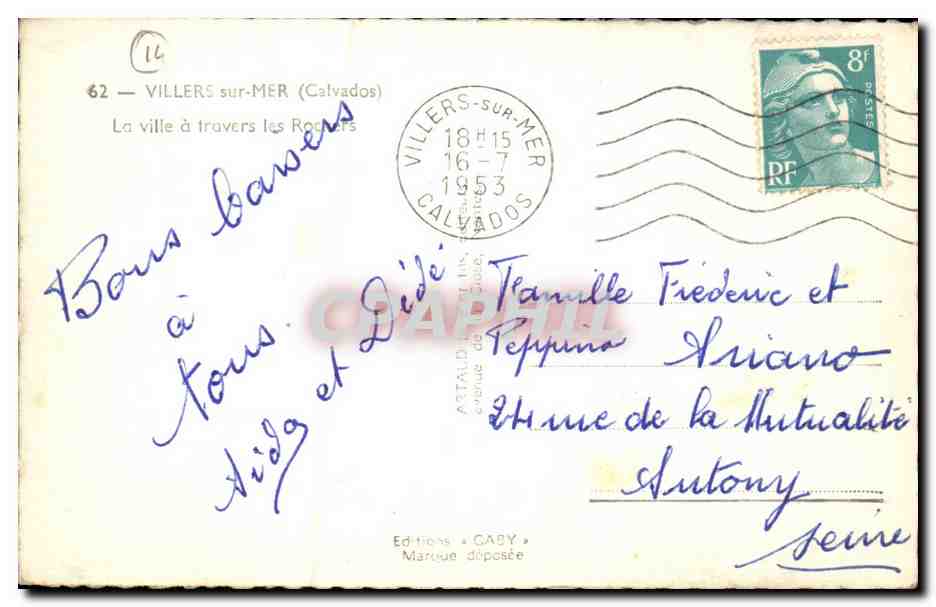 14
62 — VILLERS sur-MER (Calvados)
La ville à travers les Rochers
Bons baisers
à
tous.
Aïda et Dédé
VILLERS-SUR-MER
18H15
16-7
1953
CALVADOS
8F
POSTES
RF
Famille Fréderic et
Peppino Ariano
24 rue de la Mutualité
Antony
Seine
ARTAUD
avenue de
CPAPHIL
Editions « GABY »
Marque déposée